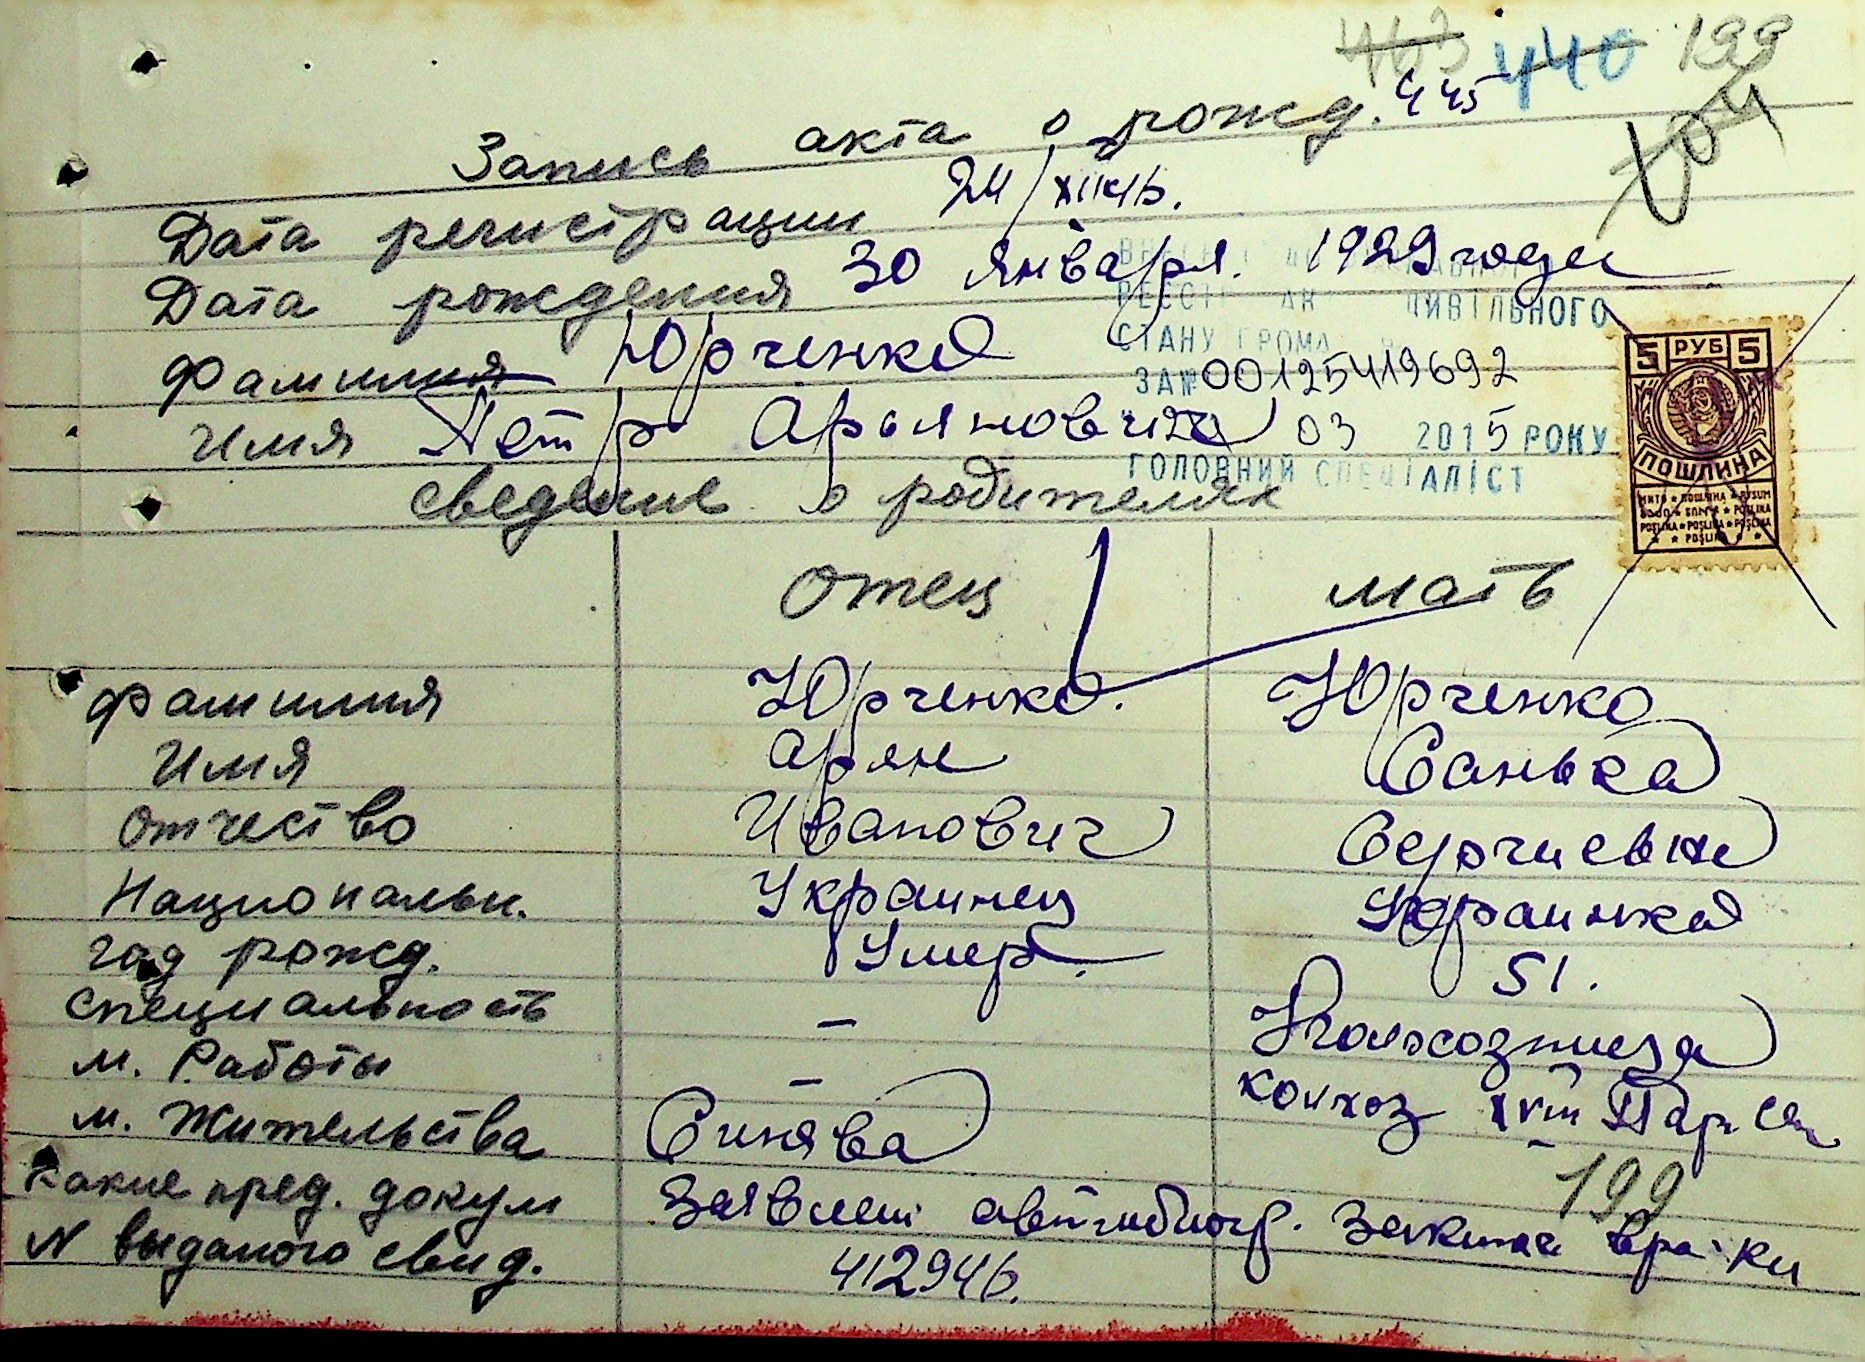 463 440 199
Запись акта о рожд. 445
104
Дата регистрации 24/XII 46.
Дата рождения 30 января. 1929 года
Фамилия Юрченко
Имя Петр Арьянович
сведение о родителях
ЦИВІЛЬНОГО
СТАНУ ГРОМА
ЗА № 00125419692
20 03 2015 РОКУ
ГОЛОВНИЙ СПЕЦІАЛІСТ
5 РУБ 5
ПОШЛИНА
МИТО ★ ПОШЛИНА ★ RUSUM
POŞLINA ★ POŞLINA ★ POŞLINA
★ ★ POŞLINA ★ ★
отец мать
фамилия Юрченко. Юрченко
Имя Арян Санька
отчество Иванович Сергиевна
Национальн. Украинец Украинка
год рожд. Умер. 51.
специальность – Колхозница
м. Работы – колхоз
м. Жительства Синява
199
Какие пред. докум Заявлен автобиогр.
N выданого свид. 412946.